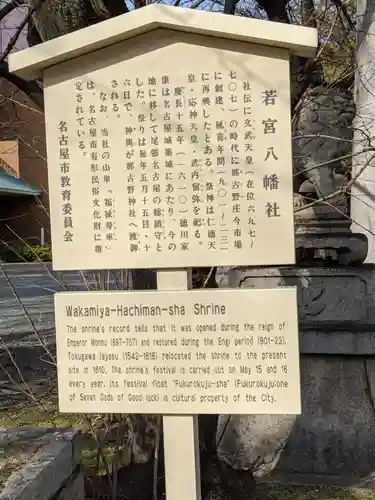 若宮八幡社
社伝に文武天皇(在位六九七〜
七〇七)の時代に那古野庄今市場
に創建、延喜年間(九〇一〜二三)
に再興したとある。祭神は仁徳天
皇・応神天皇・武内宿弥を祀る。
慶長十五年(一六一〇)徳川家
康は名古屋城築城にあたり、今の
地に移して尾張名古屋の総鎮守と
した。祭りは毎年五月十五日・十
六日で、神輿が那古野神社へ渡御
される。
なお、当社の山車「福禄寿車」
は、名古屋市有形民俗文化財に指
定されている。
名古屋市教育委員会
Wakamiya-Hachiman-sha Shrine
The shrine's record tells that it was opened during the reign of
Emperor Monmu (697-707) and restored during the Engi period (901-23).
Tokugawa Ieyasu (1542-1616) relocated the shrine to the present
site in 1610. The shrine's festival is carried out on May 15 and 16
every year. Its festival float "Fukurokuju-sha" (Fukurokuju:one
of Seven Gods of Good-luck) is cultural property of the City.